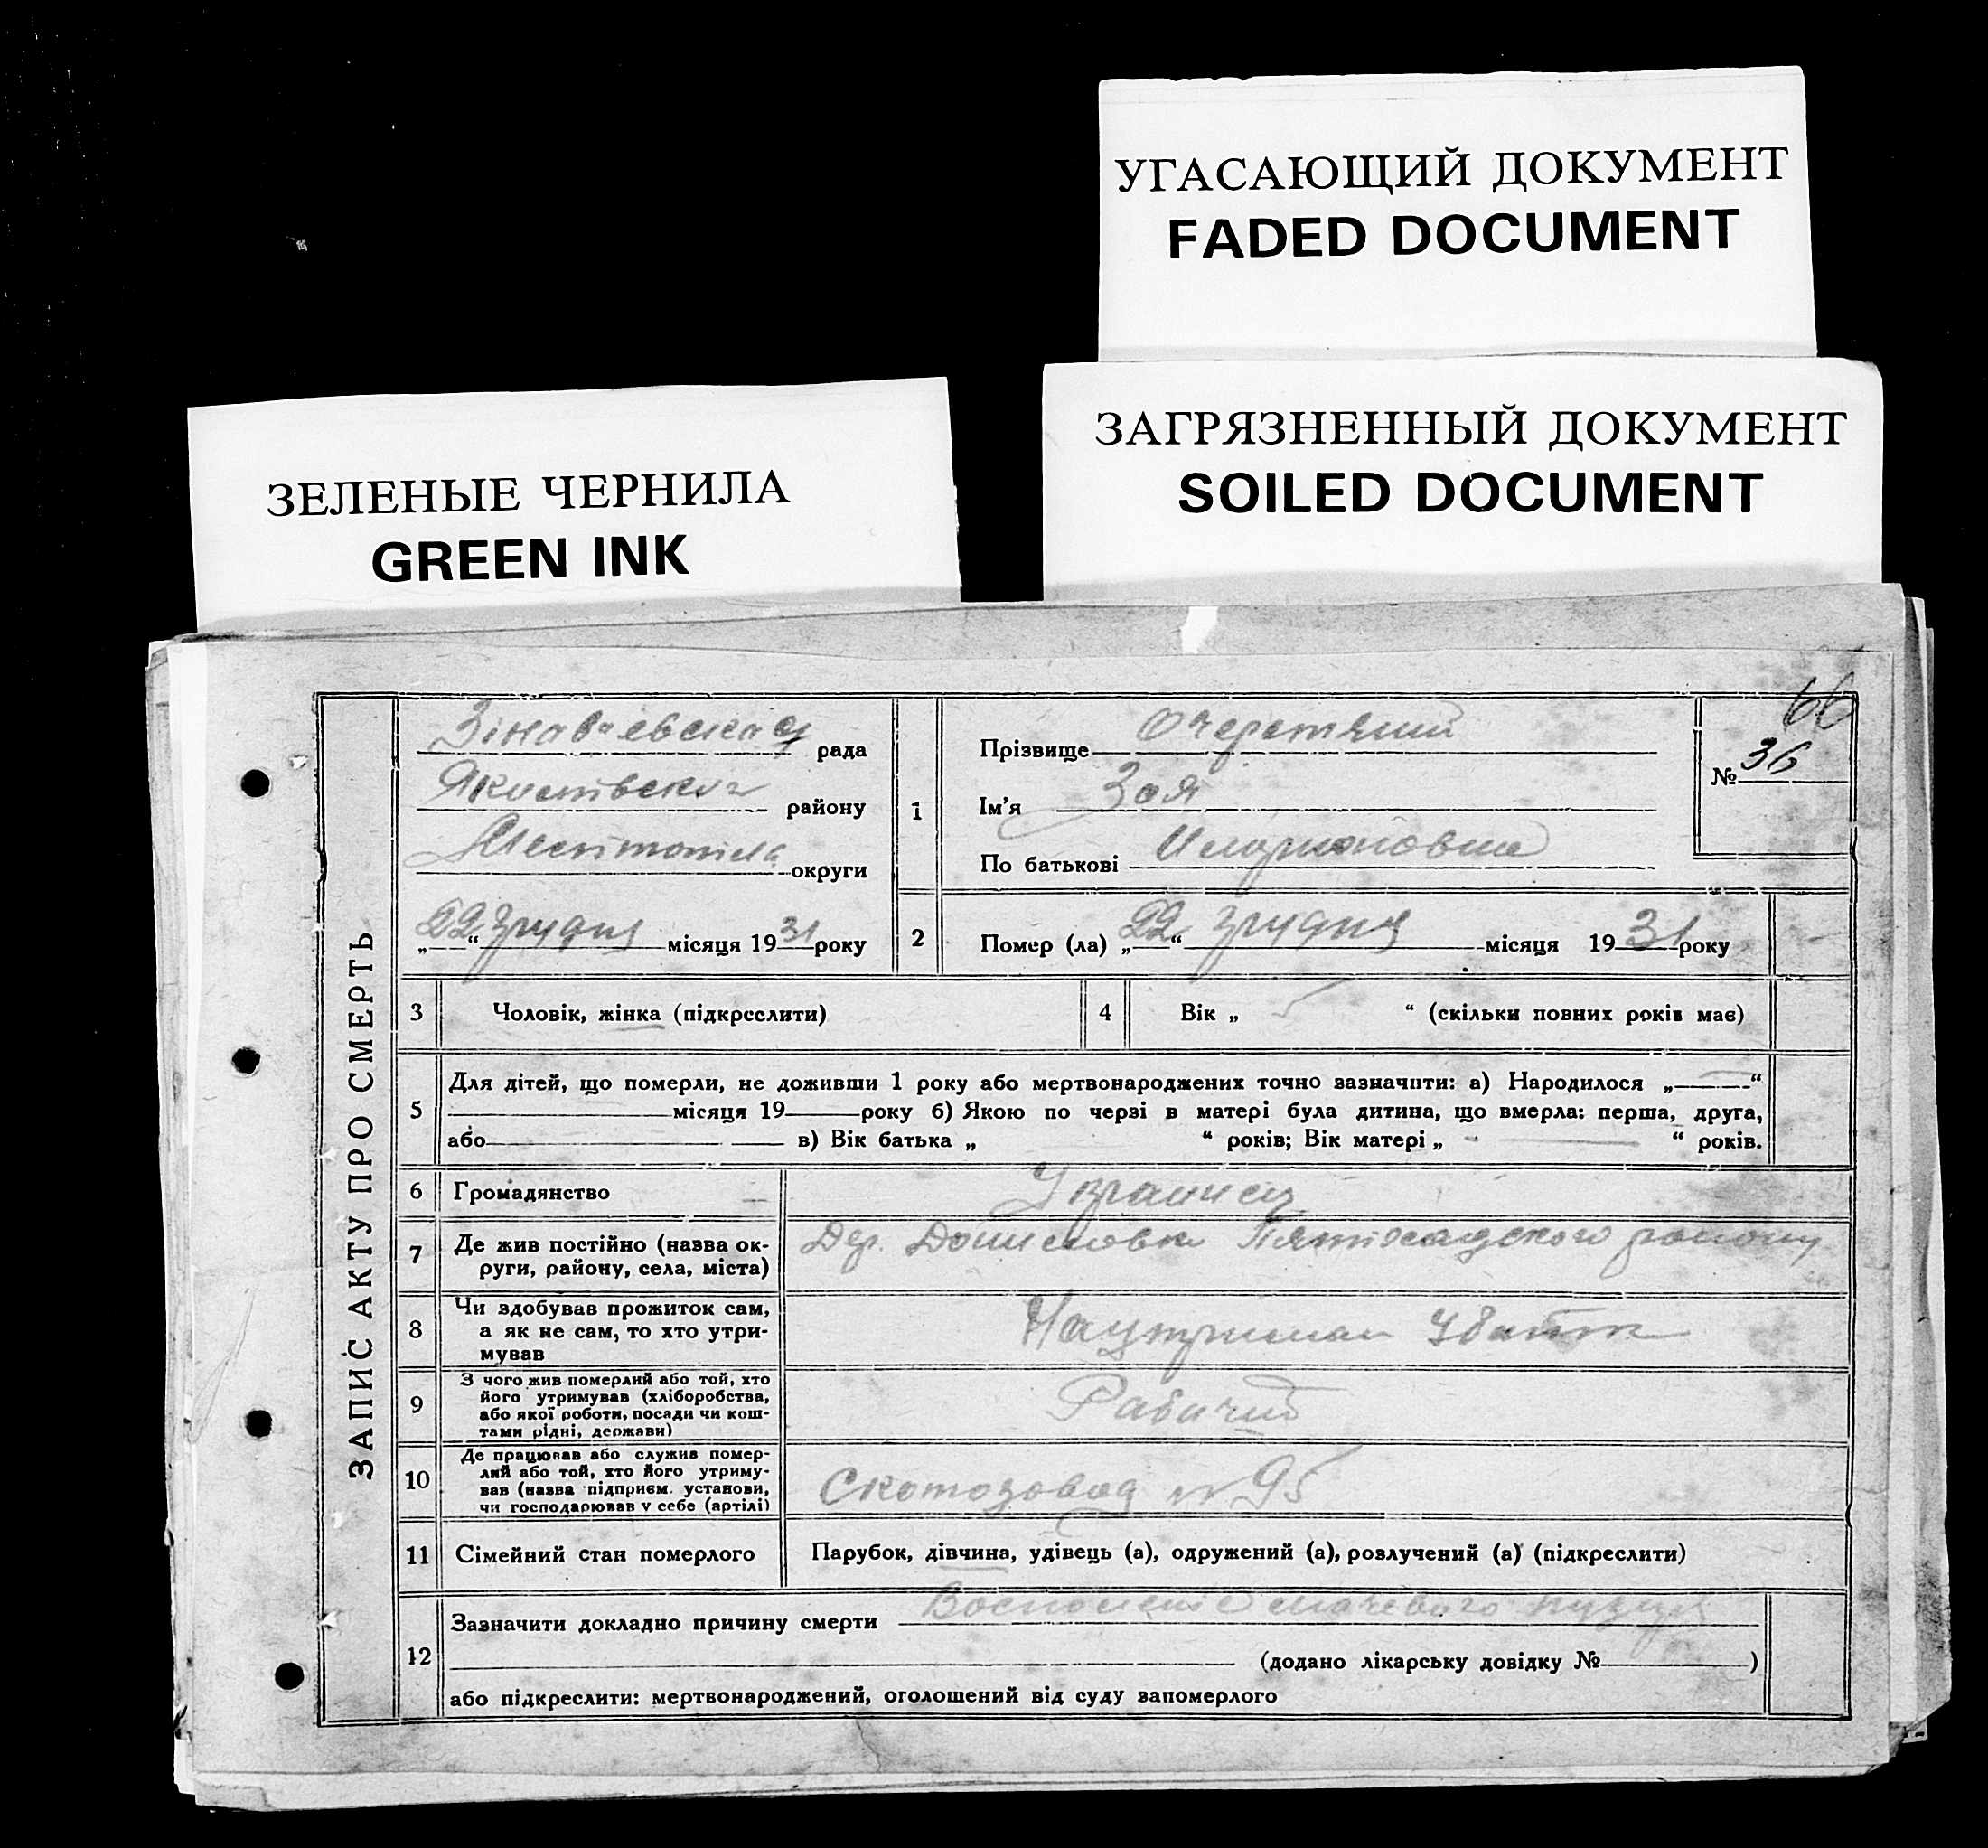 УГАСАЮЩИЙ ДОКУМЕНТ
FADED DOCUMENT
ЗАГРЯЗНЕННЫЙ ДОКУМЕНТ
SOILED DOCUMENT
ЗЕЛЕНЫЕ ЧЕРНИЛА
GREEN INK
66
ЗАПИС АКТУ ПРО СМЕРТЬ
рада
району
округи
„22“ грудня місяця 1931 року
1
Прізвище Очеретяний
Ім'я Зоя
По батькові
№ 36
2
Помер (ла) „22“ грудня місяця 1931 року
3
Чоловік, жінка (підкреслити)
4
Вік „ “ (скільки повних років має)
5
Для дітей, що померли, не доживши 1 року або мертвонароджених точно зазначити: а) Народилося „ “
місяця 19 року б) Якою по черзі в матері була дитина, що вмерла: перша, друга,
або в) Вік батька „ “ років; Вік матері „ “ років.
6
Громадянство
7
Де жив постійно (назва ок-
руги, району, села, міста)
району
8
Чи здобував прожиток сам,
а як не сам, то хто утри-
мував
9
З чого жив померлий або той, хто
його утримував (хліборобства,
або якої роботи, посади чи кош-
тами рідні, держави)
Рабочий
10
Де працював або служив помер-
лий або той, хто його утриму-
вав (назва підприєм. установи,
чи господарював у себе (артілі)
95
11
Сімейний стан померлого
Парубок, дівчина, удівець (а), одружений (а), розлучений (а) (підкреслити)
12
Зазначити докладно причину смерти
(додано лікарську довідку № )
або підкреслити: мертвонароджений, оголошений від суду запомерлого